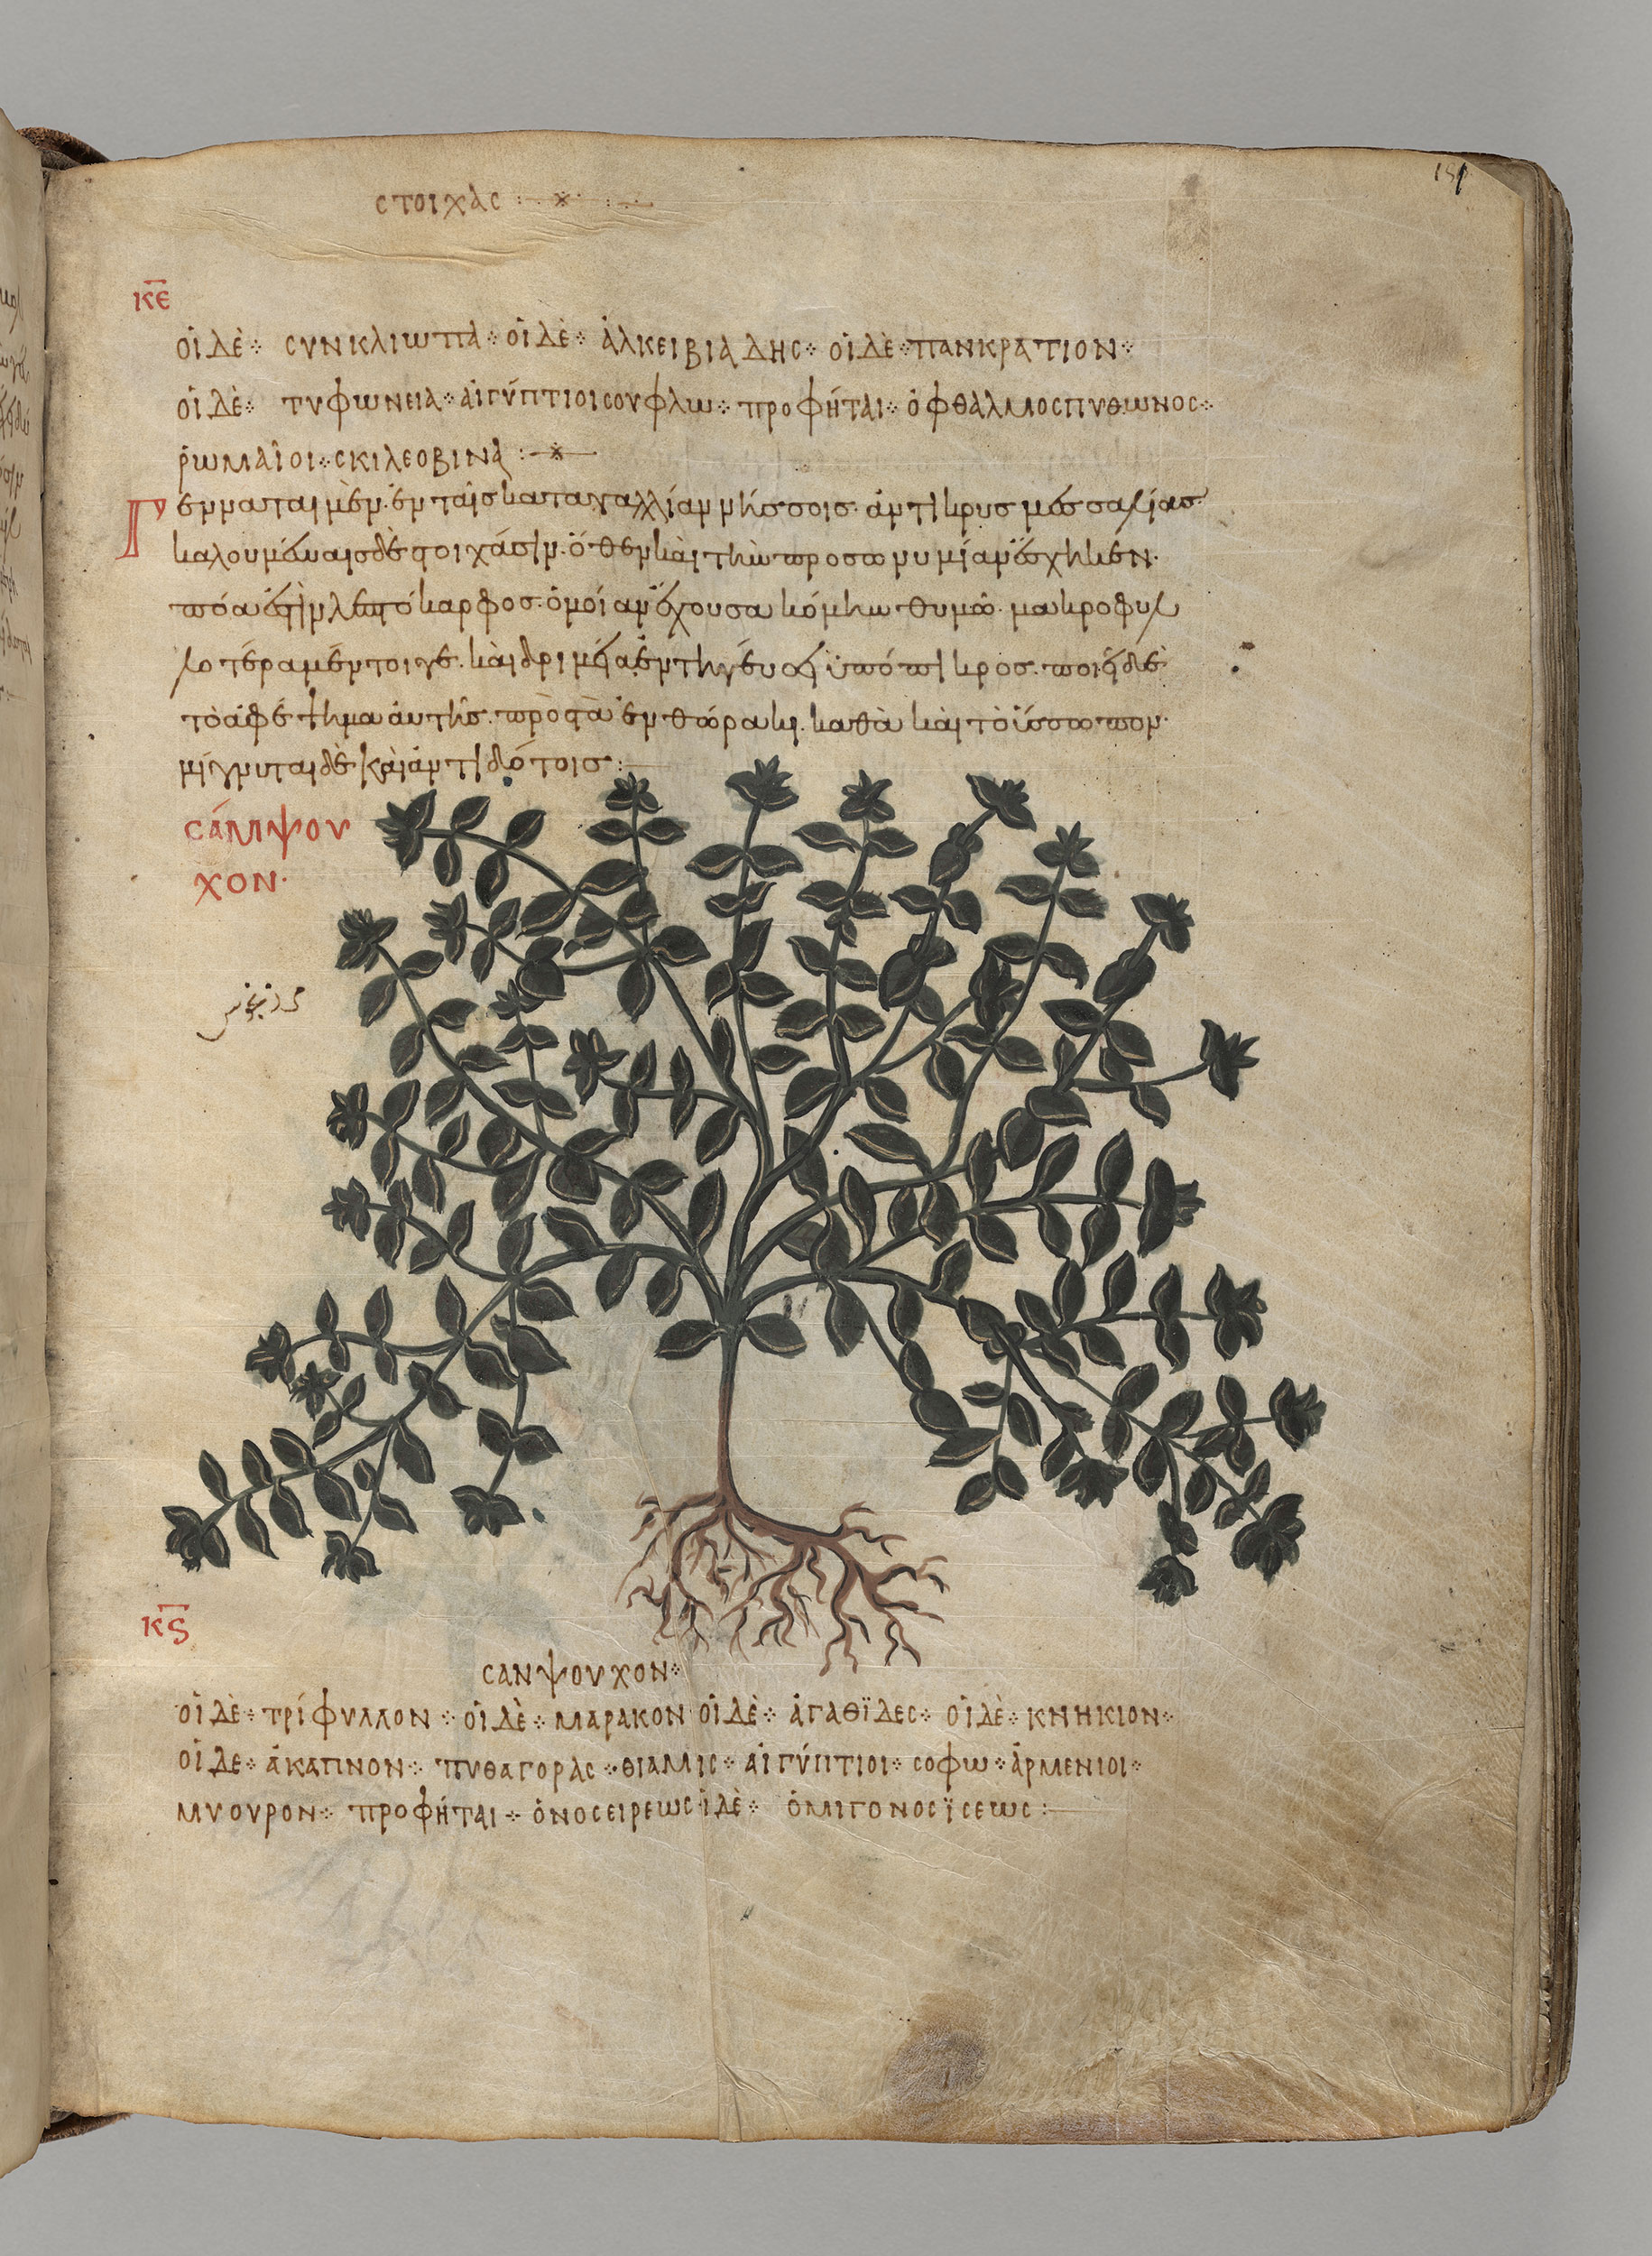 ϲτοιχὰϲ :
151
κε̅
οἱ δὲ ⁘ ϲυνκλιωπὰ ⁘ οἱ δὲ ⁘ ἀλκειβιάδηϲ ⁘ οἱ δὲ ⁘ πανκρατιον ⁘
οἱ δὲ ⁘ τυφωνεια ⁘ αἰγύπτιοι ϲουφλω ⁘ προφήται ⁘ ὀφθαλμοϲ πυθωνοϲ ⁘
ῥωμαῖοι ⁘ ϲκιλεοβινα :
Γεννᾶται μὲν ἐν ταῖσ κατὰ γαλλίαν νήσσοισ· ἀντικρυσ μεσσαλίασ·
καλουμέναισ δὲ στοιχάσιν· ὅθεν καὶ τὴν προσωνυμίαν ἔσχηκεν·
πόα ἐστὶν λεπτόκαρφοσ· ὁμοίαν ἔχουσα κόμην θυμῶ· μακροφυλ
λοτέρα μέντοιγε· καὶ δριμεῖα ἐν τῆ γεύσει ὑπόπικροσ· ποιεῖ δὲ
τὸ ἀφέψημα ἀυτῆσ· πρὸσ τὰ ἐν θώρακι· καθὰ καὶ τὸ ὕσσωπον·
μίγνυται δὲ καὶ ἀντιδότοισ :
ϲάμψου
χον·
مرزنجوش
κϛ̅
ϲανψουχον ⁘
οἱ δὲ ⁘ τρίφυλλον ⁘ οἱ δὲ ⁘ μαρακον οἱ δὲ ⁘ ἀγαθϊδεϲ ⁘ οἱ δὲ ⁘ κνηκιον ⁘
οἱ δε ⁘ ἀκαπνον ⁘ πυθαγοραϲ ⁘ θιαμιϲ ⁘ αἰγύπτιοι ⁘ ϲοφω ⁘ ἀρμενιοι ⁘
μυουρον ⁘ προφήται ⁘ ὀνοϲ ειρεωϲ ἱ δὲ ⁘ ὁμιγονοϲ ϊϲεωϲ :